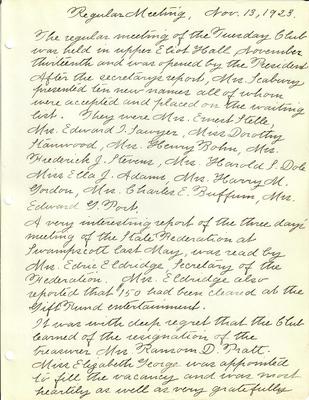 Regular Meeting, Nov. 13, 1923.
The regular meeting of the Tuesday Club
was held in upper Eliot Hall November
thirteenth and was opened by the President
After the secretary's report, Mrs. Seabury
presented ten new names all of whom
were accepted and placed on the waiting
list. They were Mrs. Ernest Stelle,
Mrs. Edward I. Sawyer, Miss Dorothy
Stanwood, Mrs. Henry Bohn, Mrs.
Frederick J. Stevens, Mrs. Harold S. Dole
Miss Ella J. Adams, Mrs. Harry M.
Gordon, Mrs. Charles E. Buffum, Mrs.
Edward G. Port.
A very interesting report of the three days'
meeting of the State Federation at
Swampscott last May, was read by
Mrs. Edric Eldridge, Secretary of the
Federation. Mrs. Eldridge also
reported that $150 had been cleared at the
Gift Fund entertainment.
It was with deep regret that the Club
learned of the resignation of the
treasurer Mrs. Ransom D. Pratt.
Miss Elizabeth George was appointed
to fill the vacancy and was most
heartily as well as very gratefully